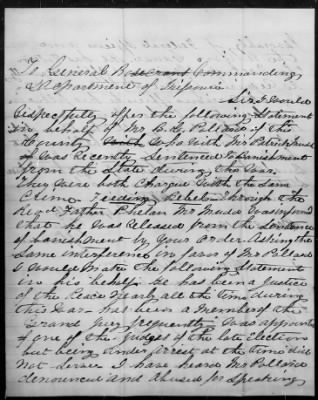 To General Rosecrans Commanding
Department of Missouri
Sir I would
respectfully offer the following Statement
in behalf of Mr B. G. Pollard of this
County Who With Mr Patrick
Was Recently Sentenced to banishment
from the State during the War.
They were both Charged with the Same
Crime feeding Rebels through the
Revd Father Phelan Mr was informed
that he was Released from the Sentence
of banishment by Your Order. Asking the
Same interference in favor of Mr Pollard
I would Make the following Statement
in his behalf. he has been a Justice
of the Peace Nearly all the time during
this War - has been a Member of the
Grand Jury frequently Was appointed
one of the Judges of the late Election
but being under arrest at the time did
Not serve I have heard Mr Pollard
denounced and abused for Speaking